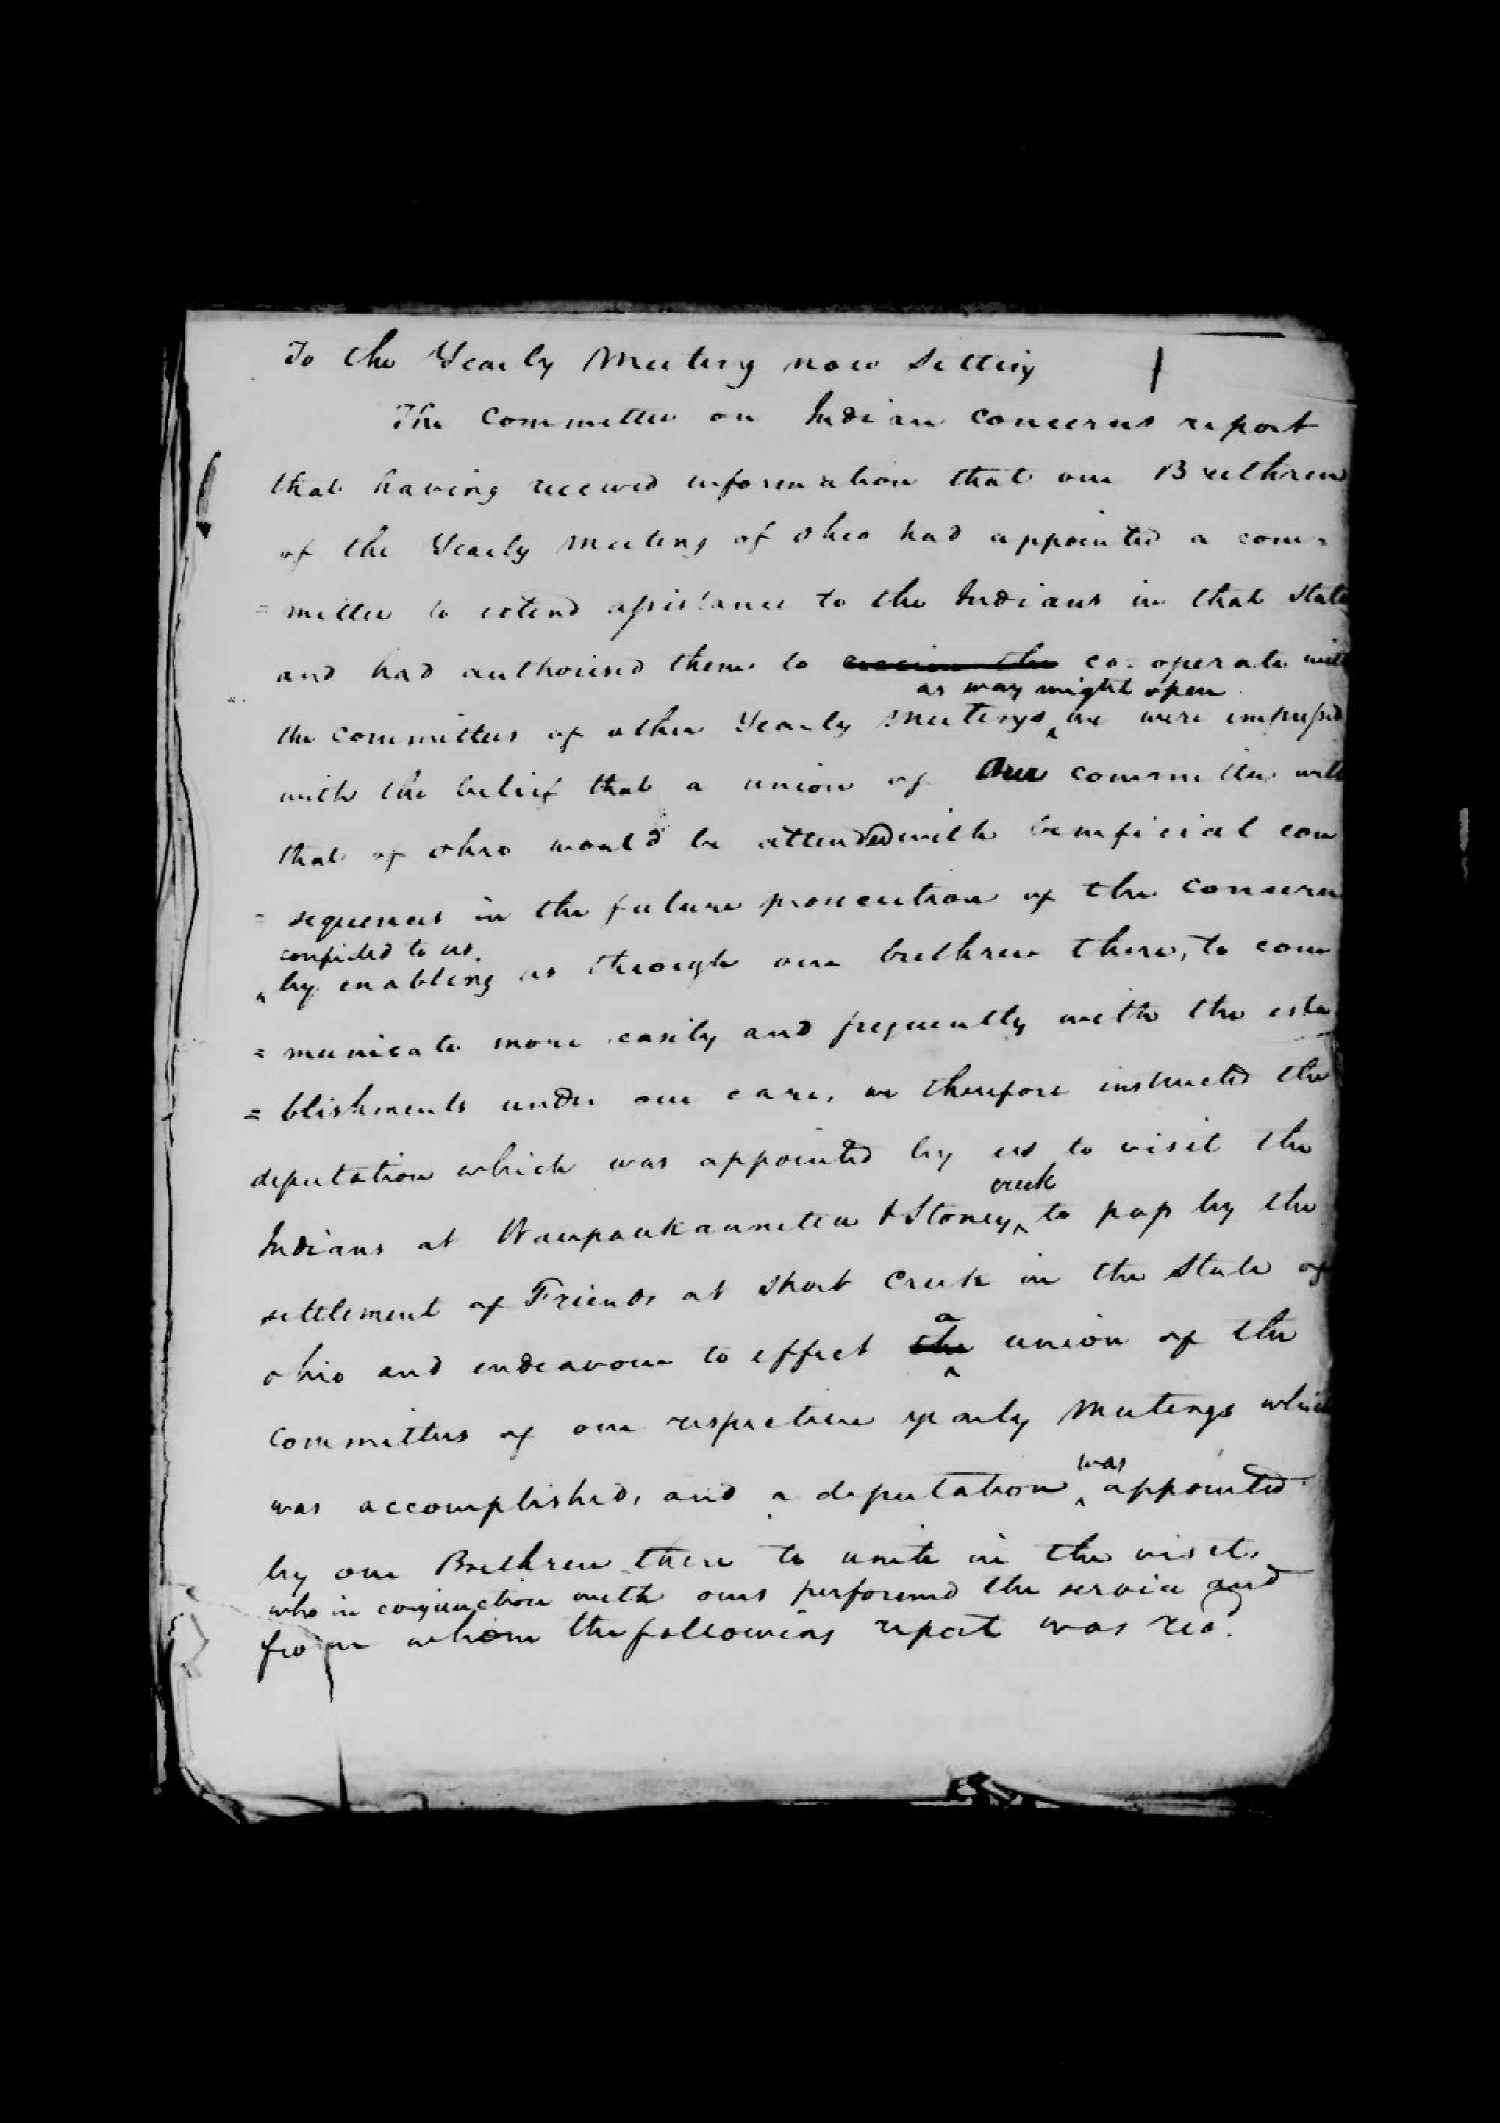 To the Yearly Meeting now Setting
The Committee on Indian concerns report
that having received information that our Brethren
of the Yearly Meeting of Ohio had appointed a com-
=mittee to extend assistance to the Indians in that State
and had authorised them to the co-operate with
as way might open
the committees of other Yearly Meetings we were impressed
with the belief that a union of Our committee with
that of Ohio would be attended with beneficial con
=sequences in the future prosecution of the concern
confided to us
by enabling us through our brethren there, to com
=municate more easily and frequently with the esta
=blishments under our care, we therefore instructed the
deputation which was appointed by us to visit the
creek
Indians at Waupaukaunetta & Stoney to pass by the
settlement of Friends at Short Creek in the State of
a
Ohio and endeavour to effect the union of the
committees of our respective yearly Meetings which
was
was accomplished, and a deputation appointed
by our Brethren there to unite in the visit,
who in conjunction with ours performed the service and
from whom the following report was rec'd.